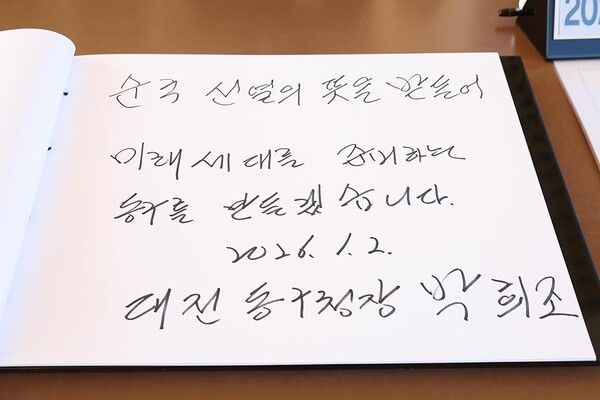 202
순국 선열의 뜻을 받들어
미래 세대를 준비하는
동구를 만들겠습니다.
2026. 1. 2.
대전 동구청장 박희조